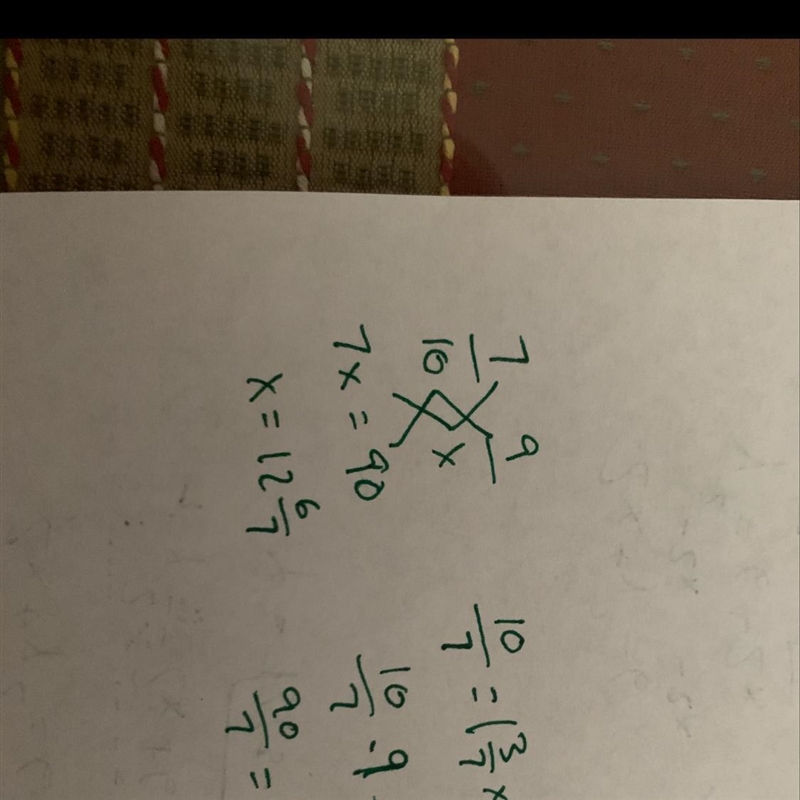 7/10 9/x
7x = 90
x = 12 6/7
10/7 = 1 3/7 x
10/7 · 9
90/7 =